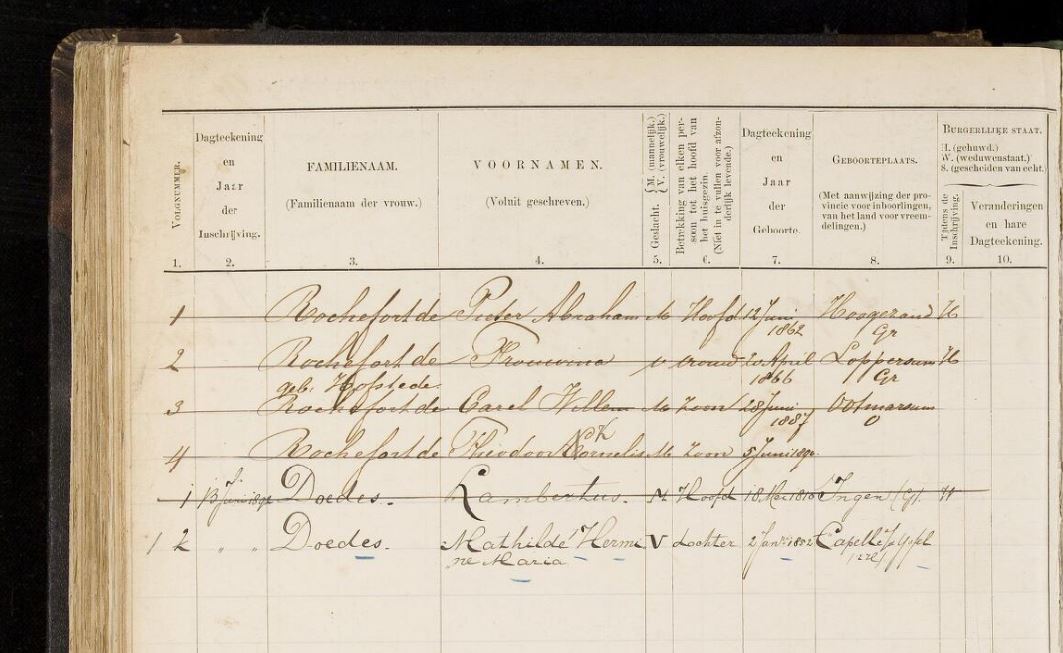 BURGERLIJKE STAAT.
H. (gehuwd.)
W. (weduwenstaat.)
S. (gescheiden van echt.)
VOLGNUMMER.
Dagteekening en Jaar der Inschrijving.
FAMILIENAAM.
(Familienaam der vrouw.)
VOORNAMEN.
(Voluit geschreven.)
Geslacht. { M. (mannelijk.) V. (vrouwelijk.)
Betrekking van elken persoon tot het hoofd van het huisgezin.
(Niet in te vullen voor afzonderlijk levende.)
Dagteekening en Jaar der Geboorte.
GEBOORTEPLAATS.
(Met aanwijzing der provincie voor inboorlingen, van het land voor vreemdelingen.)
Tijdens de Inschrijving.
Veranderingen en hare Dagteekening.
1. 2. 3. 4. 5. 6. 7. 8. 9. 10.
1 Rochefort de Pieter Abraham M Hoofd 12 Juni Hoogezand H
1862 Gr
2 Rochefort de Trouwina v vrouw 20 April Loppersum H
geb. Hofstede 1866 Gr
3 Rochefort de Carel Willem M Zoon 28 Juni Ootmarsum
1887 O
4 Rochefort de Theodoor Kornelis M Zoon 5 Juni 1890
1 13 Doedes. Lambertus. M. Hoofd 18 Mei Ingen (G).
1 2 " " Doedes. Mathilde Hermi V dochter 2 Capelle
ne Maria